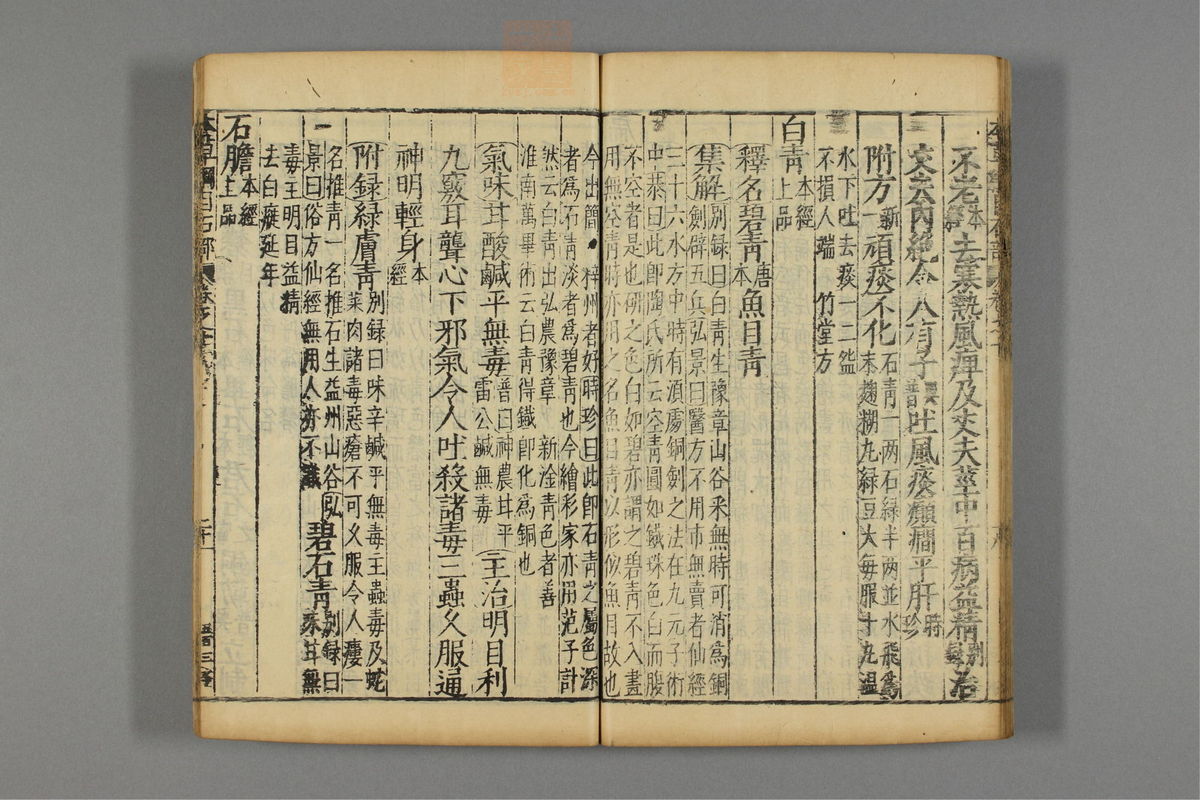 不老本經去寒熱風痺及丈夫莖中百病益精別錄治
丈夫內絕令人有子吐風痰癲癎平肝時珍
附方新一頑痰不化石青一兩石綠半兩並水飛爲
末麴糊丸綠豆大每服十丸溫
水下吐去痰一二盌
不損人端竹堂方
白青本經上品
釋名碧青唐本魚目青
集解別錄曰白青生豫章山谷采無時可消爲銅
劍辟五兵弘景曰醫方不用市無賣者仙經
三十六水方中時有須處銅劍之法在九元子術
中恭曰此卽陶氏所云空青圓如鐵珠色白而腹
不空者是也硏之色白如碧亦謂之碧青不入畫
用無空青時亦用之名魚目青以形似魚目故也
今出簡州梓州者好時珍曰此卽石青之屬色深
者爲石青淡者爲碧青也今繪彩家亦用范子計
然云白青出弘農豫章新淦青色者善
淮南萬畢術云白青得鐵卽化爲銅也
氣味甘酸鹹平無毒普曰神農甘平雷公鹹無毒主治明目利
九竅耳聾心下邪氣令人吐殺諸毒三蟲久服通
神明輕身本經
附錄綠膚青別錄曰味辛鹹平無毒主蟲毒及蛇
菜肉諸毒惡瘡不可久服令人瘻一
名推青一名推石生益州山谷弘
景曰俗方仙經無用人亦不識碧石青別錄曰味甘無
毒主明目益精
去白癡延年
石膽本經上品